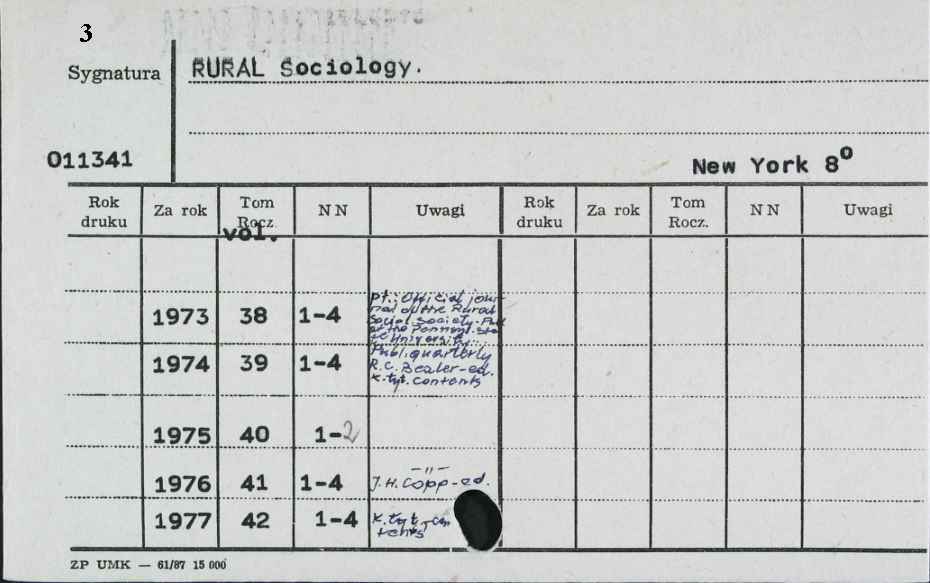 3
Sygnatura
RURAL Sociology.
011341
New York 8°
Rok druku
Za rok
Tom Rocz.
vol.
NN
Uwagi
Rok druku
Za rok
Tom Rocz.
NN
Uwagi
1973 38 1-4
pt.; Official jour-
nal of the Rural
Social. Society. Publ
at the Pennsyl. Sta-
te University.
1974 39 1-4
Publ. quarterly
R.C. Bealer-ed.
K. tyt. contents
1975 40 1-2
1976 41 1-4
-"-
J.H. Copp-ed.
1977 42 1-4
K. tyt. con
tents
ZP UMK — 61/87 15 000